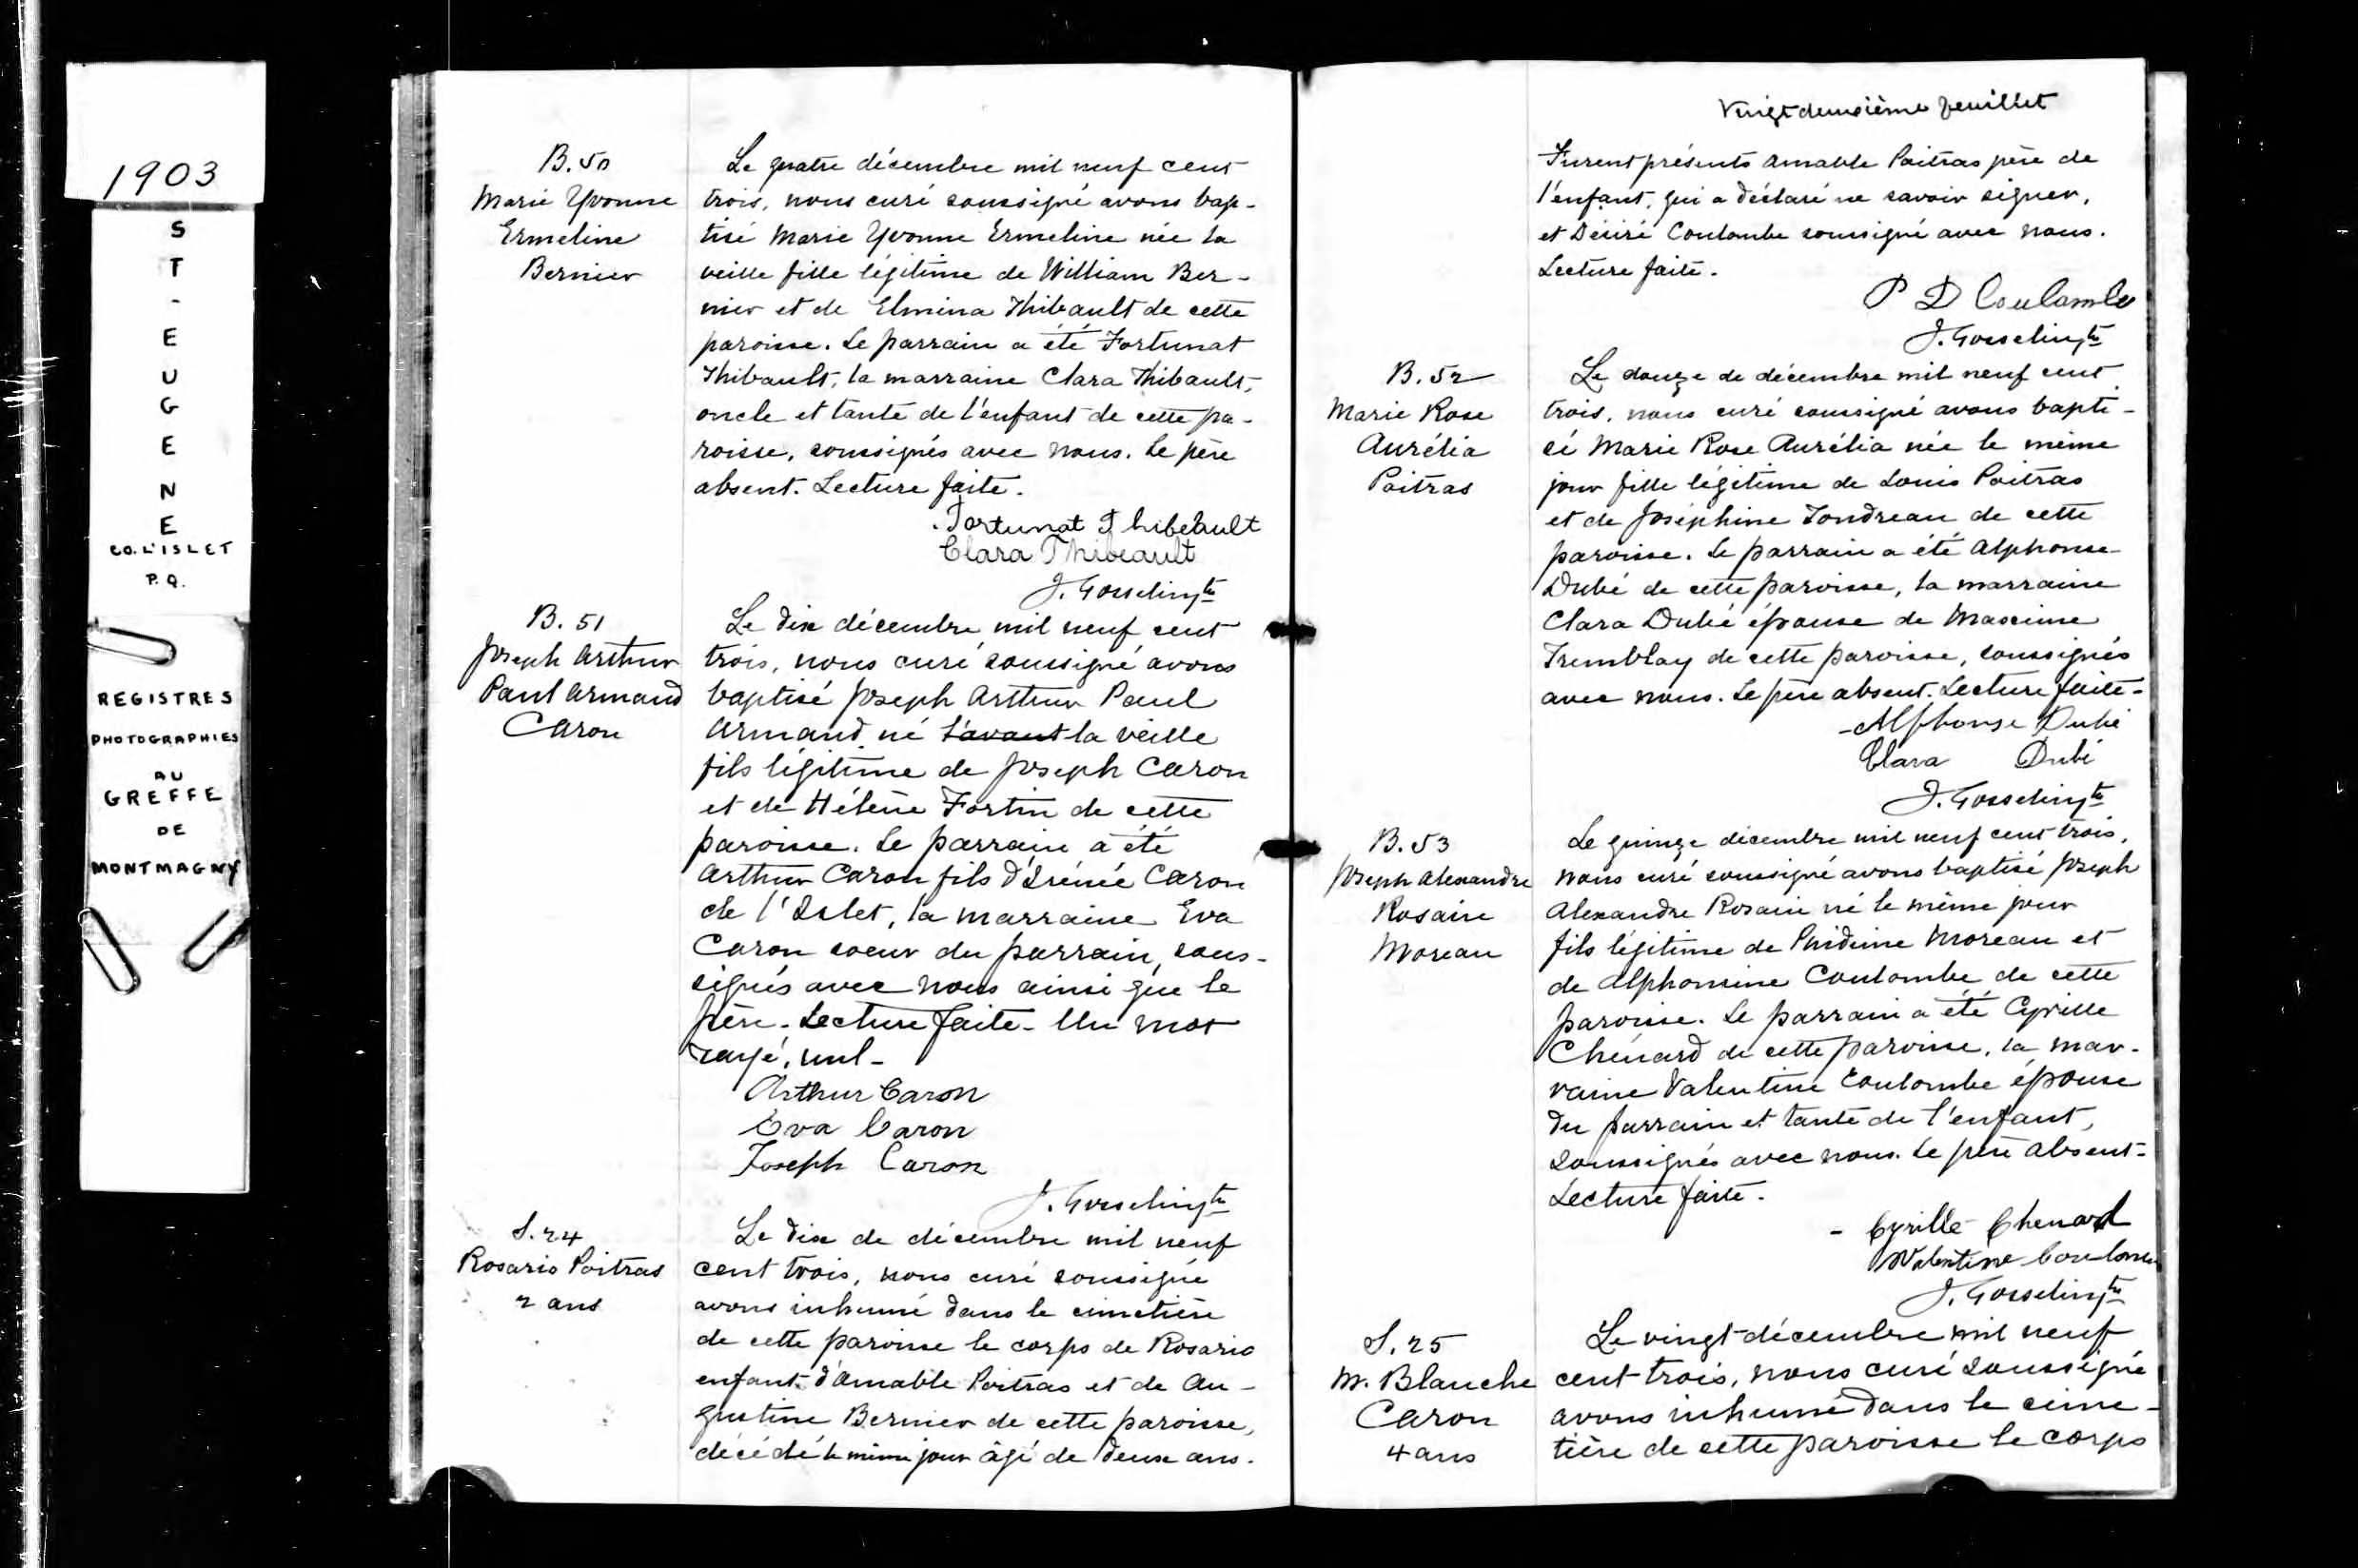 1903
S
T
-
E
U
G
E
N
E
CO. L'ISLET
P.Q.
REGISTRES
PHOTOGRAPHIES
AU
GREFFE
DE
MONTMAGNY
B. 50
Marie Yvonne
Ermeline
Bernier
Le quatre décembre mil neuf cent
trois, nous curé soussigné avons bap-
tisé Marie Yvonne Ermeline née la
veille fille légitime de William Ber-
nier et de Elmina Thibault de cette
paroisse. Le parrain a été Fortunat
Thibault, la marraine Clara Thibault,
oncle et tante de l'enfant de cette pa-
roisse, soussignés avec nous. Le père
absent. Lecture faite.
Fortunat Thibeault
Clara Thibeault
J. Gosselin ptre
B. 51
Joseph Arthur
Paul Armand
Caron
Le dix décembre mil neuf cent
trois, nous curé soussigné avons
baptisé Joseph Arthur Paul
Armand né l'avant la veille
fils légitime de Joseph Caron
et de Hélène Fortin de cette
paroisse. Le parrain a été
Arthur Caron fils d'Irénée Caron
de l'Islet, la marraine Eva
Caron soeur du parrain, sous-
signés avec nous ainsi que le
père. Lecture faite. Un mot
rayé, nul-
Arthur Caron
Eva Caron
Joseph Caron
J. Gosselin ptre
S. 24
Rosario Poitras
2 ans
Le dix de décembre mil neuf
cent trois, nous curé soussigné
avons inhumé dans le cimetière
de cette paroisse le corps de Rosario
enfant d'Amable Poitras et de Au-
gustine Bernier de cette paroisse,
décédé le même jour âgé de deux ans.
Vingt deuxième feuillet
Furent présents Amable Poitras père de
l'enfant, qui a déclaré ne savoir signer,
et Désiré Coulombe soussigné avec nous.
Lecture faite.
P D Coulombe
J. Gosselin ptre
B. 52
Marie Rose
Aurélia
Poitras
Le douze de décembre mil neuf cent
trois, nous curé soussigné avons bapti-
sé Marie Rose Aurélia née le même
jour fille légitime de Louis Poitras
et de Joséphine Tondreau de cette
paroisse. Le parrain a été Alphonse
Dubé de cette paroisse, la marraine
Clara Dubé épouse de Maxime
Tremblay de cette paroisse, soussignés
avec nous. Le père absent. Lecture faite-
Alphonse Dubé
Clara Dubé
J. Gosselin ptre
B. 53
Joseph Alexandre
Rosaire
Moreau
Le quinze décembre mil neuf cent trois,
nous curé soussigné avons baptisé Joseph
Alexandre Rosaire né le même jour
fils légitime de Phidime Moreau et
de Alphonsine Coulombe de cette
paroisse. Le parrain a été Cyrille
Chénard de cette paroisse, la mar-
raine Valentine Coulombe épouse
du parrain et tante de l'enfant,
soussignés avec nous. Le père absent-
Lecture faite.
Cyrille Chenard
Valentine Coulombe
J. Gosselin ptre
S. 25
M. Blanche
Caron
4 ans
Le vingt décembre mil neuf
cent trois, nous curé soussigné
avons inhumé dans le cime-
tière de cette paroisse le corps